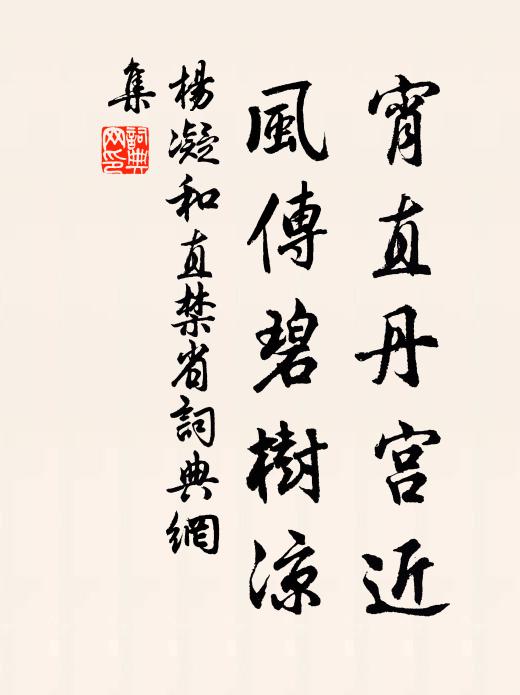 宵直丹宮近
風傳碧樹涼
楊凝和直禁省詞典網
集
詞典
网印